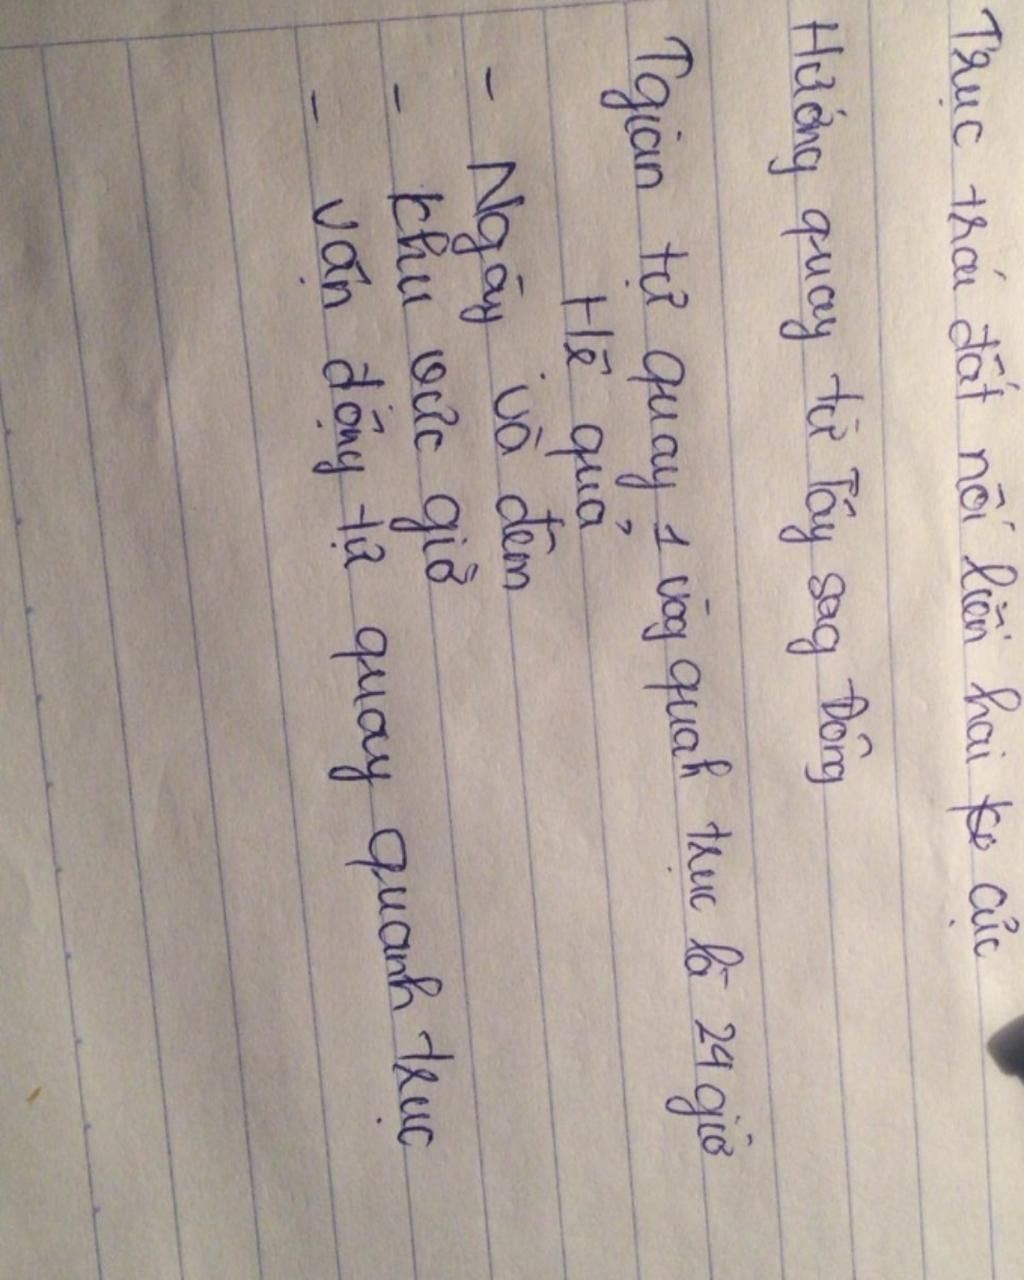 Trục trái đất nối liền hai cực
Hướng quay từ Tây sag Đông
Tgian tự quay 1 vòg quah trục là 24 giờ
Hệ quả
- Ngày và đêm
- khu vực giờ
- vận động tự quay quanh trục